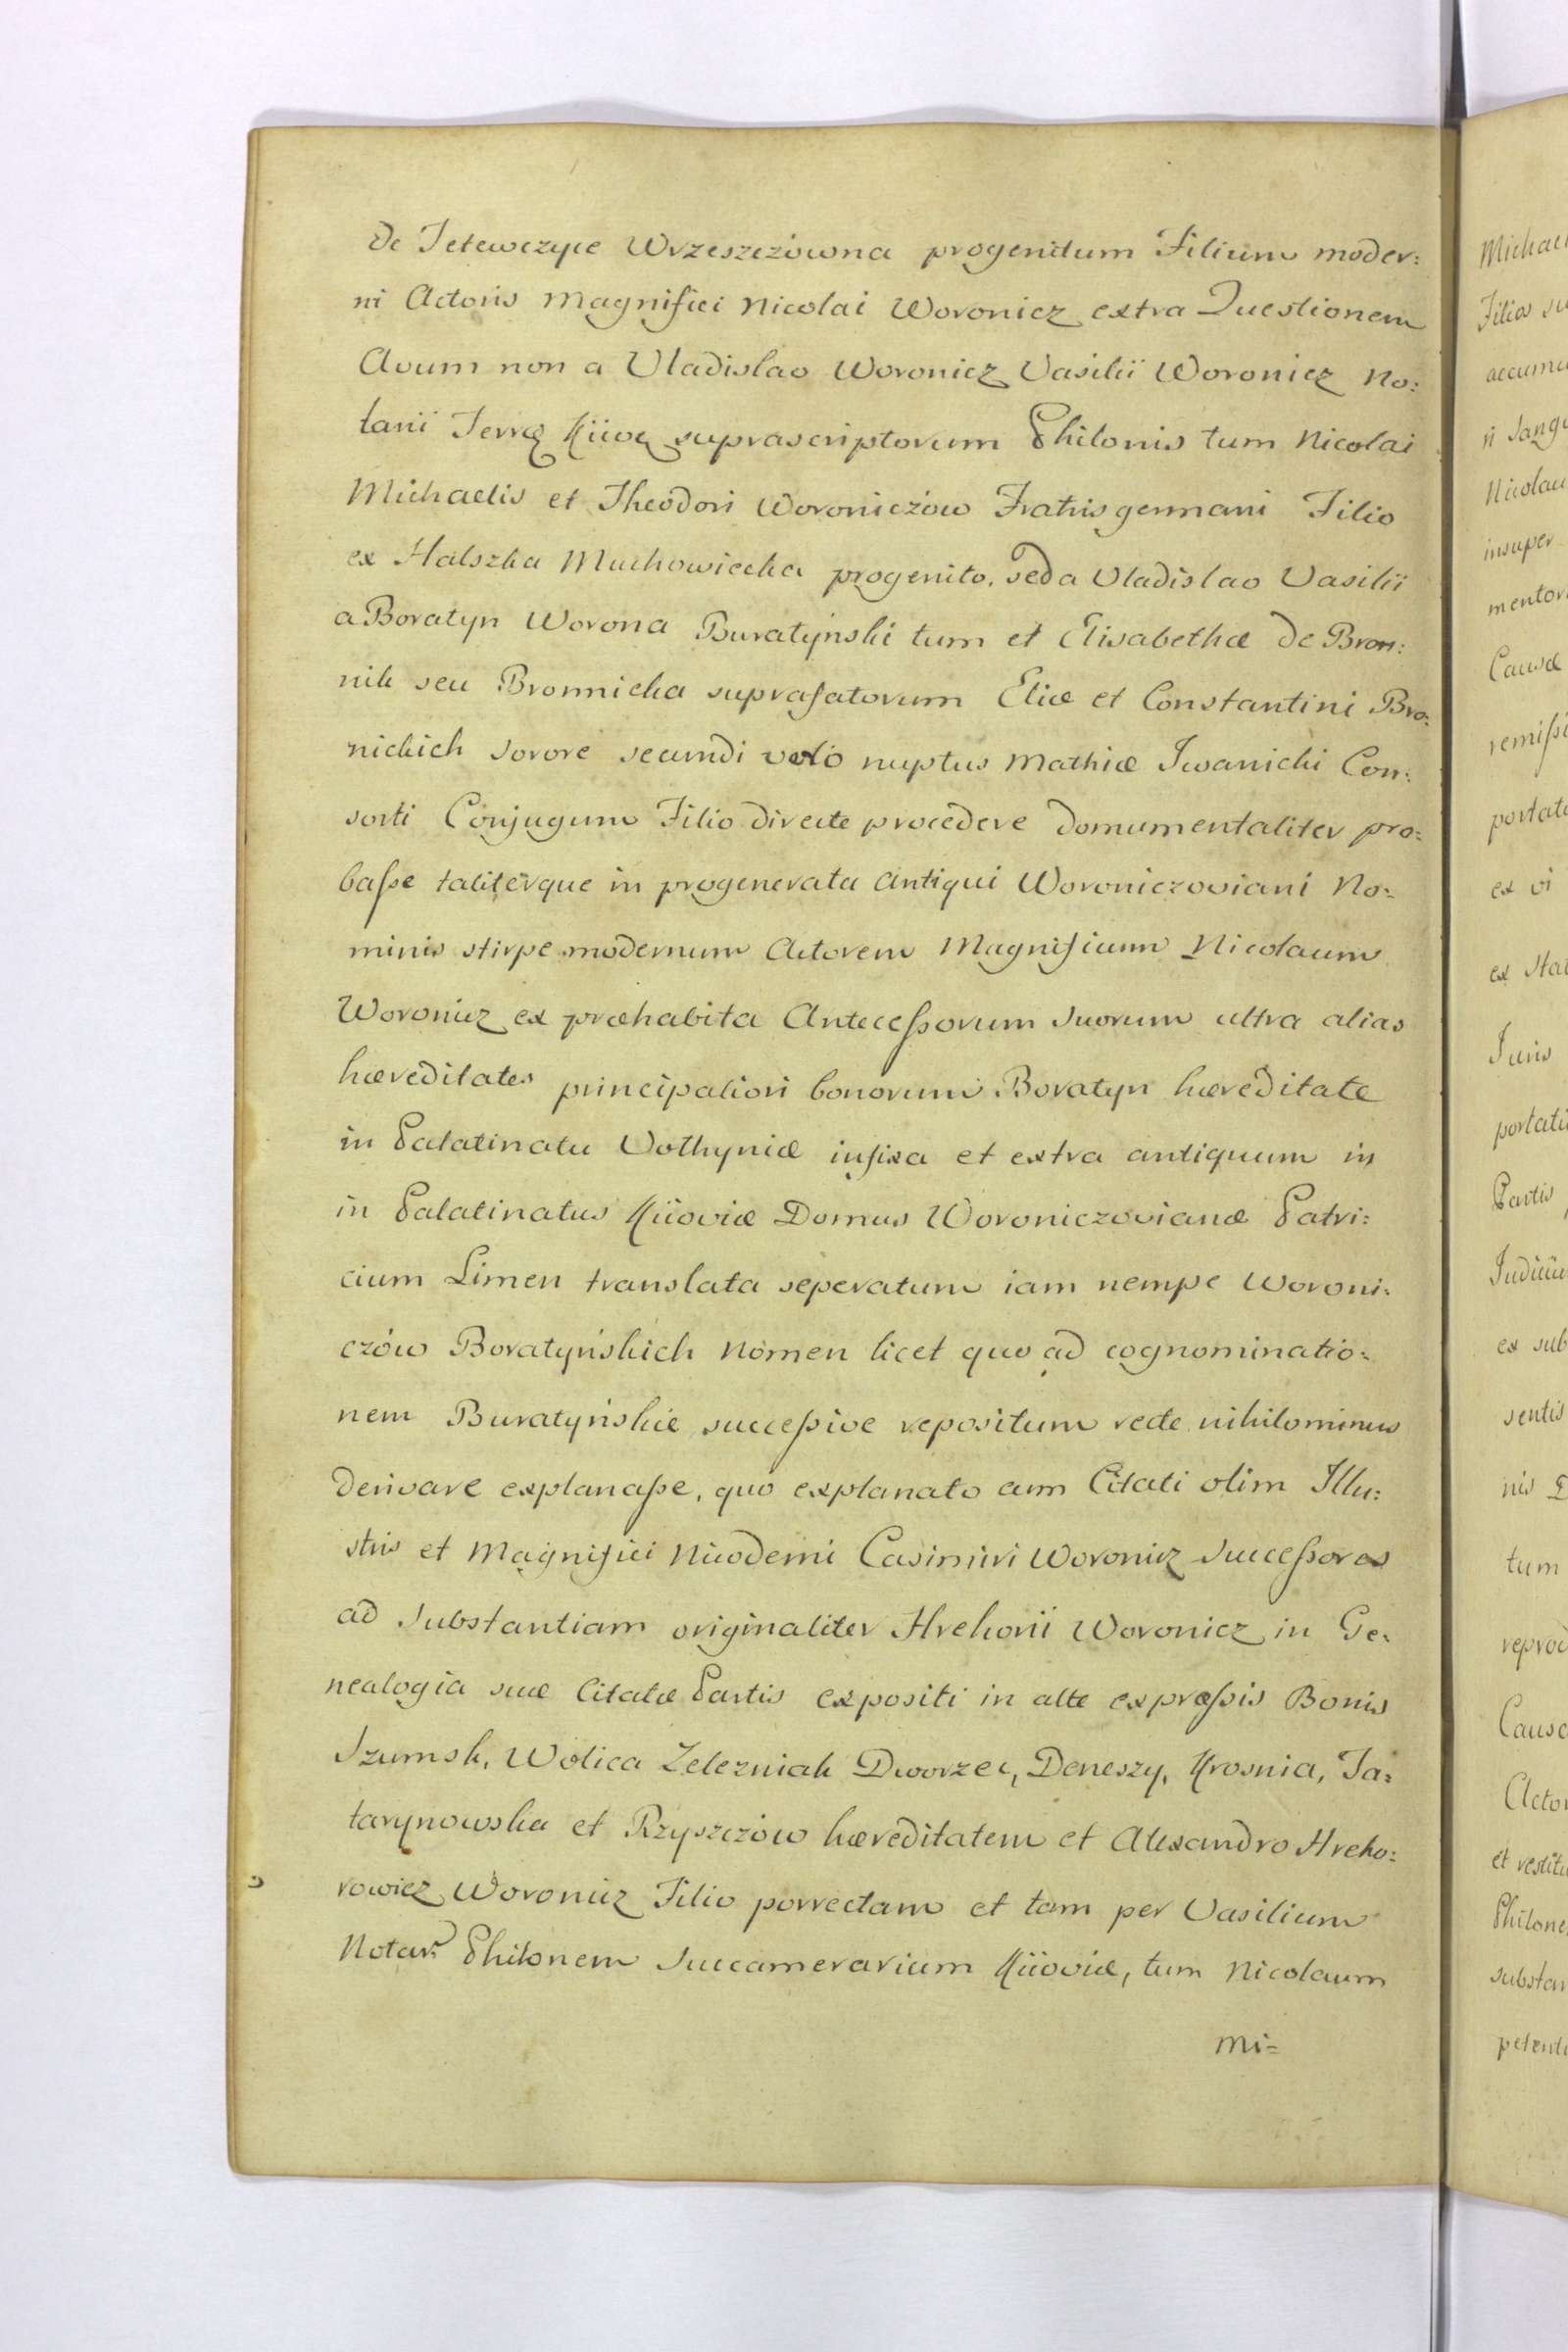 de Jetewczyce Wrzeszczówna progenitum Filium moder:
ni Actoris Magnifici Nicolai Woronicz extra Questionem
Avum non a Vladislao Woronicz Vasilii Woronicz No:
tarii Terræ Kiiovæ suprascriptorum Philonis tum Nicolai
Michaelis et Theodori Woroniczów Fratris germani Filio
ex Halszka Muchowiecka progenito, sed a Vladislao Vasilii
a Boratyn Worona Buratyński tum et Elisabethæ de Bron:
nik seu Bronnicka suprafatorum Eliæ et Constantini Bro:
nickich Sorore secundi voto nuptus Mathiæ Iwanicki Con:
sorti Conjugum Filio directe procedere domumentaliter pro:
basse taliterque in progenerata Antiqui Woroniczoviani No:
minis stirpe modernum Actorem Magnificum Nicolaum
Woronicz ex præhabita Antecessorum Suorum ultra alias
hæreditates principaliori bonorum Boratyn hæreditate
in Palatinatu Volhyniæ infixa et extra antiquum in
in Palatinatus Kiioviæ Domus Woroniczovianæ Patri:
cium Limen translata seperatum iam nempe Woroni:
czów Boratyńskich Nomen licet quo ad cognominatio:
nem Buratyńskie successive repositum recte nihilominus
derivare explanasse, quo explanato cum Citati olim Illu:
stris et Magnifici Nicodemi Casimiri Woronicz Successores
ad Substantiam originaliter Hrehorii Woronicz in Ge:
nealogia suæ Citatæ Partis expositi in alte expræssis Bonis
Szumsk, Wolica Zelezniak Dworzec, Deneszy, Krosnia, Ta:
tarynowska et Rzyszczów hæreditatem et Alexandro Hreho:
rowicz Woronicz Filio porrectam et tam per Vasilium
Notar: Philonem Succamerarium Kiioviæ, tum Nicolaum
Mi=